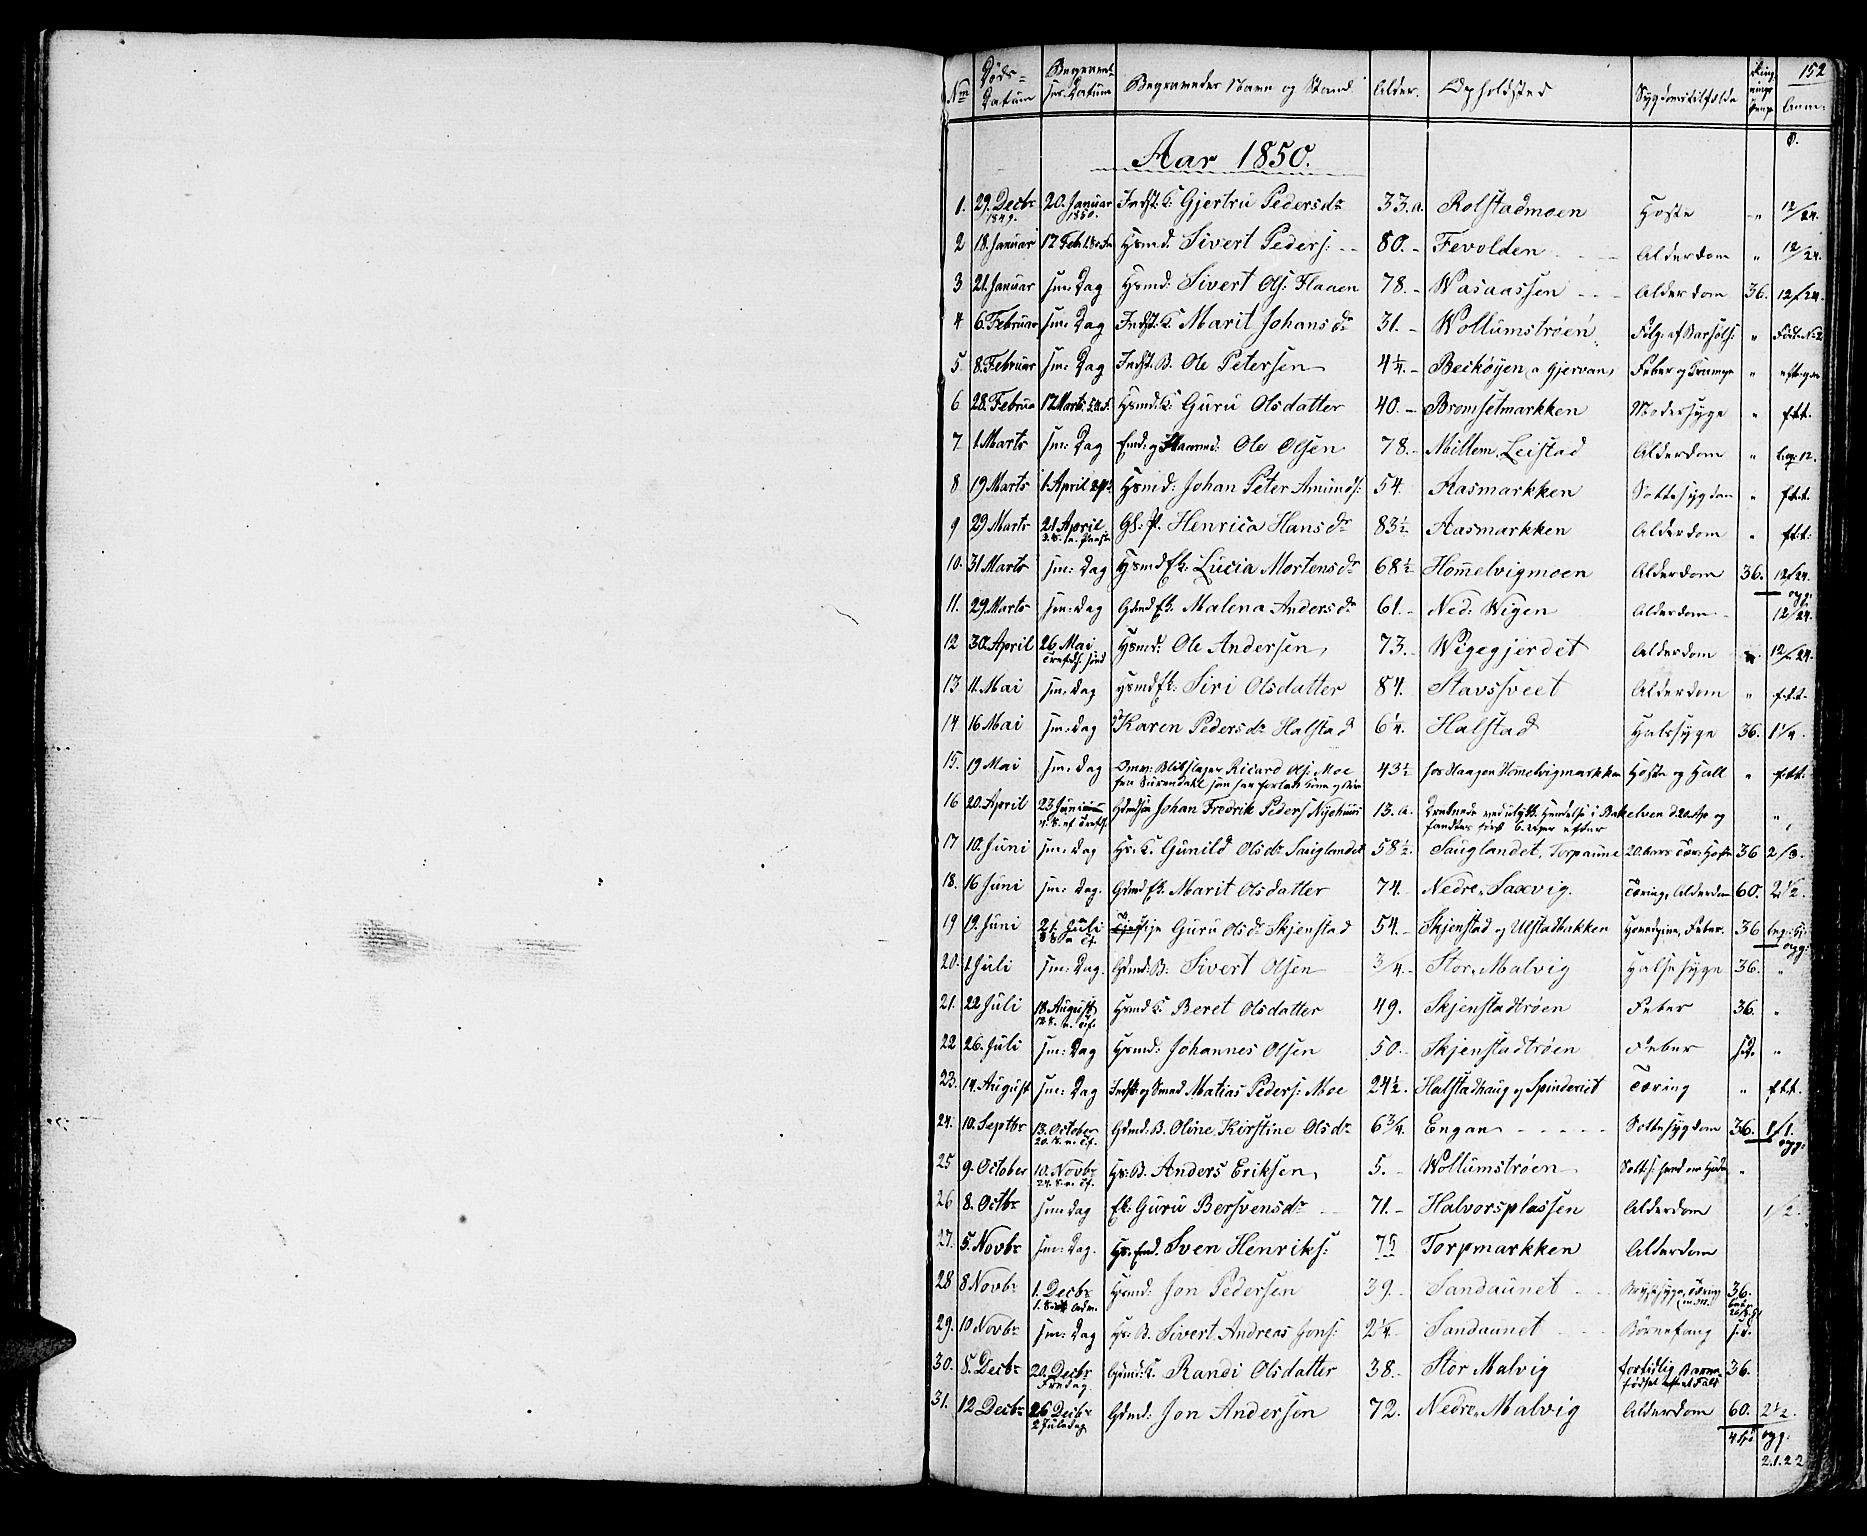 152
Nr Døds- Datum Begravel- ses-Datum Begravedes Navn og Stand Alder. Opholdsted Sygdomstilfælde Anm:
Aar 1850.
1. 29. Decbr 1849. 20. Januar 1850. Indst: K. Gjertru Pedersdr 33. a. Rolstadmoen Hoste " 12/24.
2 18. Januar 17 Febr. Hsmd. Sivert Peders: 80. - Fevolden Alderdom " 12/24.
3 21. Januar sm: Dag Hsmd: Sivert Ols: Flaaen 78. - Wasaassen Alderdom 36. 12/24.
4 6. Februar sm: Dag Indst: K. Marit Johansdr 31. - Wollumstrøen Følg: af Barsels: "
5. 8. Februar sm: Dag Indst. B. Ole Petersen 4 1/4. - Beckøyen, a Gjervan, Feber og Krampe "
6 28. Februa 17 Marts Hsmd: K. Guru Olsdatter 40. - Bromsetmarkken Modersyge " f.t.t.
7. 1. Marts sm: Dag Ole Olsen 78. - Mellem Leistad Alderdom "
8 19 Marts 1. April Hsmd: Johan Peter Amunds: 54. Aasmarkken Sottesygdom " f.t.t.
9 29 Marts 21 April. Gl: P. Henrica Hansdr 83 1/2 Aasmarkken Alderdom " f.t.t.
10. 31 Marts sm: Dag Hsmd Ek: Lucia Mortensdr 68 1/2 Homelvigmoen Alderdom 36. 12/24.
11. 29 Marts sm: dag Gdmd Ek. Malena Andersdr 61. - Ned. Wigen Alderdom 12/24.
12 30. April 26 Mai Hsmd: Ole Andersen 73. - Wigegjerdet Alderdom 12/24.
13 11. Mai sm: dag Hsmd Ek: Siri Olsdatter 84. Stavssveet Alderdom " f.t.t.
14 16 Mai sm: dag Karen Pedersdr Halstad 6 1/4. Halstad Halssyge 36. 1 1/4.
15. 19 Mai sm: dag Ricard Ols: Moe 43 1/2 hos Haagen Homelvigmarkken Hoste og Hall " f.t.t.
16 20. April 23 Juni Gdmdsøn Johan Fredrik Peders Nyehuus 13. a. Druknede ved ulykk. Hendelse i Bakelven d. 20. Ap og
fandtes først 6 Uger efter "
17 10. Juni sm: dag Hs: K. Gunild Olsdr Sauglandet 58 1/2. Sauglandet, Torpaune 20. Aars Tær. Hoste 36 2/3.
18. 16 Juni sm: dag. Gdmd Ek. Marit Olsdatter 74. Nedre Saxvig. Tæring, Alderdom 60. 2 1/2.
19 9. Juni 21. Juli Guru Olsdr Skjenstad 54. - Skjenstad og Ulstadbakken Feber. 36
20. 1 Juli sm: Dag. Gdmd: B: Sivert Olsen 3/4. Stor Malvig Halsesyge 36. "
21. 22 Juli 18. August Hsmd K. Beret Olsdatter 49. Skjenstadtrøen Feber 36. "
22 26. Juli sm: Dag Hsmd: Johannes Olsen 50. Skjenstadtrøen Feber "
23. 14. August sm: Dag Indst: og Smed Matias Peders: Moe 24 1/2. Halstadhaug og Spinderiet Tæring " f.t.t.
24. 10. Septbr 13. October Gdmd: B. Oline Kirstine Olsdr 6 3/4. Engan Sottesygdom 36. 1/1.
25 9. October 10. Novbr Hs: B. Anders Eriksen 5. - Wollumstrøen "
26 8. Octbr sm: dag Ek: Guru Bersvensdr 71. - Halvorsplassen Alderdom 1/2.
27. 5. Novbr sm: Dag. Sven Henriks: 75 Torpmarkken Alderdom
28 8 Novbr 1. Decbr Hsmd: Jon Pedersen 39. - Sandaunet Brystsyge, Tæring 36.
29. 10 Novbr sm: Dag Hs: B. Sivert Andreas Jons: 2 1/4 Sandaunet Børnefang
30. 5. Decbr 20. Decbr Fredag. Gdmd: K. Randi Olsdatter 38. - Stor Malvig fortidlig Barnefødsel 36.
31. 12 Decbr 26 Decbr 2 Juledag Gdmd: Jon Andersen 72. Nedre Malvig Alderdom 60. 2 1/2.
2.1.22